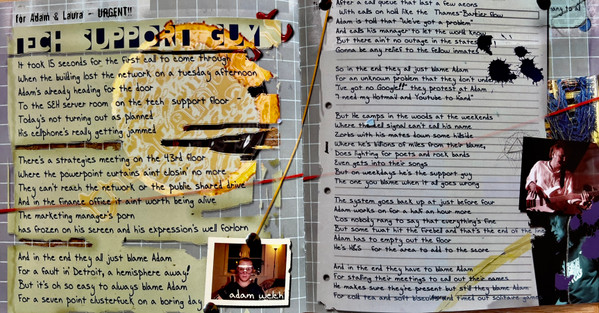 for Adam & Laura - URGENT!!
TECH SUPPORT GUY
It took 15 seconds for the first call to come through
When the building lost the network on a tuesday afternoon
Adam's already heading for the door
To the S&H server room on the tech support floor
Today's not turning out as planned
His cellphone's really getting jammed
There's a strategies meeting on the 43rd floor
Where the powerpoint curtains aint closin no more
They can't reach the network on the public shared drive
And in the finance office it aint worth being alive
The marketing manager's porn
Has frozen on his screen and his expression's well forlorn
And in the end they al just blame Adam
For a fault in Detroit, a hemisphere away!
But it's oh so easy to always blame Adam
For a seven point clusterfuck on a boring day
adam welch
After a call queue that last a few aeons
With calls on hold like the Thames Barrier
Adam is told that "We've got a problem"
And calls his manager to let the world know
But there ain't no outage in the states
Gonna be any relief to the fellow inmates
So in the end they al just blame Adam
For an unknown problem that they don't
"I've got no Google!!" they protest at Adam
"I need my Hotmail and Youtube to hand"
But He camps in the woods at the weekends
Where the signal can't call his name
Zorbs with his mates down some hillside
Where he's billions of miles from their blame,
Does lighting for poets and rock bands
Even gets into their songs
But on weekdays he's the support guy
The one you blame when it all goes wrong
The system goes back up at just before four
Adam works on for a half an hour more
'Cos nobody rang to say that everything's fine
But some twat hit the firebell and that's the end of the line
Adam has to empty out the floor
He's the for the area to add to the score
And in the end they have to blame Adam
For stalling their meetings to call out their names
He makes sure they're present but still they blame Adam
For cold tea and soft biscuits and timed out solitaire games